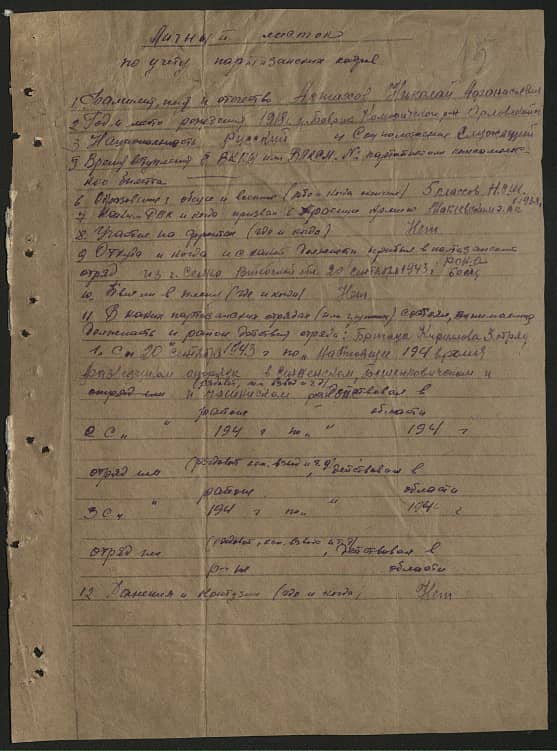 Личный листок
по учету партизанских кадров
1. Фамилия, имя и отчество Николай Афанасьевич
2. Год и место рождения 1918 г.
3. Национальность Русский и Соц положение Служащий
5 Время вступления в ВКП(б) или ВЛКСМ. № партийного комсомоль-
ского билета
6 Образование: общее и военное (где и когда кончил) 5 классов Н.С.Ш.
7 Каким РВК и когда призван в Красную Армию
8. Участие на фронтах (где и когда) Нет
9 Откуда и когда и с какой должности прибыл в партизанский
отряд из г. Сенно Витебской 20 сентября 1943 г. боец
10 Был ли в плену (где и когда) Нет
11. В каких партизанских отрядах (или группах) состоял, занимаемая
должность и район действия отряда: Бригада Кириллова 3 отряд
1. С „ 20 " сентября 1943 г по „ настоящее 194 время
в Сенненском, Бешенковичском и
отряд им (рядовой, ком. взвод и т.д) действовал в
районе области
2 С „ " 194 г по „ " 194 г
отряд им (рядовой, ком. взвод и т.д), действовал в
районе области
3 С „ " 194 г по „ " 194 г
отряд им (рядовой, ком. взвод и т.д), действовал в
р-не области
12 Ранения и контузии (где и когда) Нет